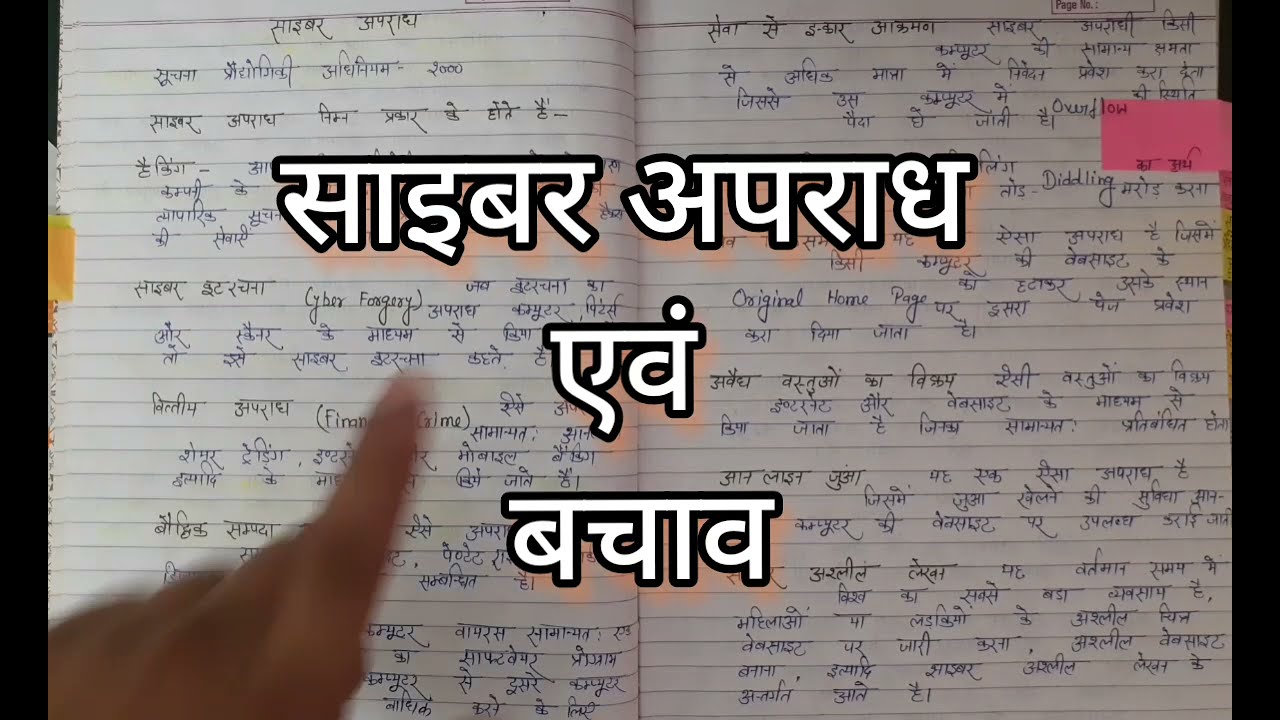 साइबर अपराध
सूचना प्रौद्योगिकी अधिनियम- २०००
साइबर अपराध निम्न प्रकार के होते हैं-
हैकिंग-
कम्पनी के
व्यापारिक
की सेवाएं
साइबर कूटरचना (Cyber Forgery) जब कूटरचना का
अपराध कम्प्यूटर, प्रिंटर्स
और स्कैनर के माध्यम से किया
तो इसे साइबर कूटरचना कहते है
वित्तीय अपराध ऐसे
सामान्यत:
शेयर ट्रेडिंग, मोबाइल बैंकिंग
इत्यादि के किये जाते हैं।
बौद्धिक सम्पदा ऐसे
पेण्टेट
सम्बन्धित है।
कम्प्यूटर वायरस सामान्यत: एक
का साफ्टवेयर प्रोग्राम
कम्प्यूटर से दूसरे कम्प्यूटर
बाधित करने के लिए
Page No.:
सेवा से इन्कार आक्रमण साइबर अपराधी किसी
कम्प्यूटर की सामान्य क्षमता
से अधिक मात्रा में निवेदन प्रवेश करा देता
जिससे उस कम्प्यूटर में Overflow की स्थिति
पैदा हो जाती है।
का अर्थ
Diddling तोड़-मरोड़ करना
ऐसा अपराध है जिसमें
किसी कम्प्यूटर की वेबसाइट के
Original Home Page को हटाकर उसके स्थान
पर दूसरा पेज प्रवेश
करा दिया जाता है।
अवैध वस्तुओं का विक्रय ऐसी वस्तुओं का विक्रय
इण्टरनेट और वेबसाइट के माध्यम से
किया जाता है जिनका सामान्यत: प्रतिबंधित होता
आनलाइन जुंआ यह एक ऐसा अपराध है
जिसमें जुआ खेलने की सुविधा आन-
कम्प्यूटर की वेबसाइट पर उपलब्ध कराई जाती
अश्लील लेखन यह वर्तमान समय में
विश्व का सबसे बडा व्यवसाय है,
महिलाओं या लडकियों के अश्लील चित्र
वेबसाइट पर जारी करना, अश्लील वेबसाइट
बनाना, इत्यादि साइबर अश्लील लेखन के
अन्तर्गत आते है।
साइबर अपराध
एवं
बचाव